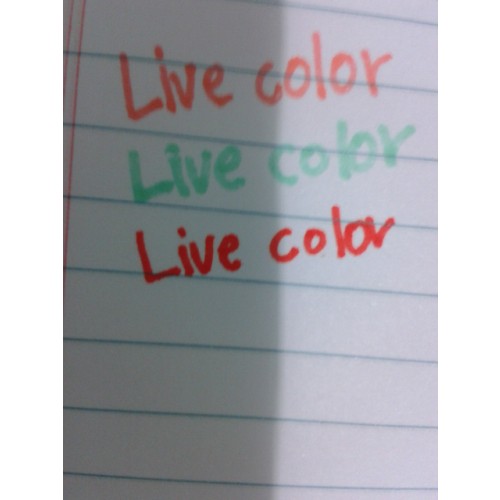 Live color
Live color
Live color